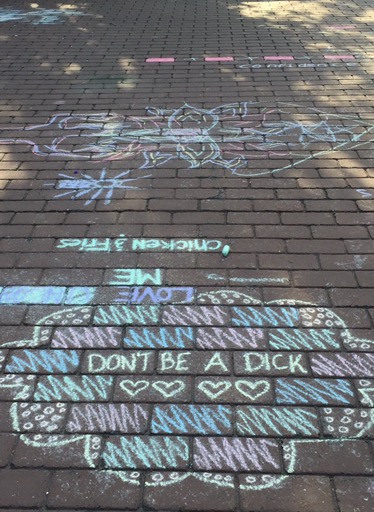 chicken & fries
ME
LOVE
DON'T BE A DICK